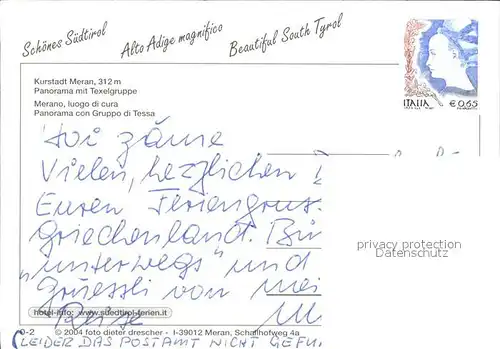 Schönes Südtirol
Alto Adige magnifico
Beautiful South Tyrol
Kurstadt Meran, 312 m
Panorama mit Texelgruppe
Merano, luogo di cura
Panorama con Gruppo di Tessa
ITALIA €0,65
Hoi zäme
Vielen, herzlichen
Euren Feriengruss
Griechenland. Bin
"unterwegs" und
grüessli von mei
Reise
privacy protection
Datenschutz
hotel-info: www.suedtirol-ferien.it
© 2004 foto dieter drescher - I-39012 Meran, Schafhofweg 4a
(LEIDER DAS POSTAMT NICHT GEFU